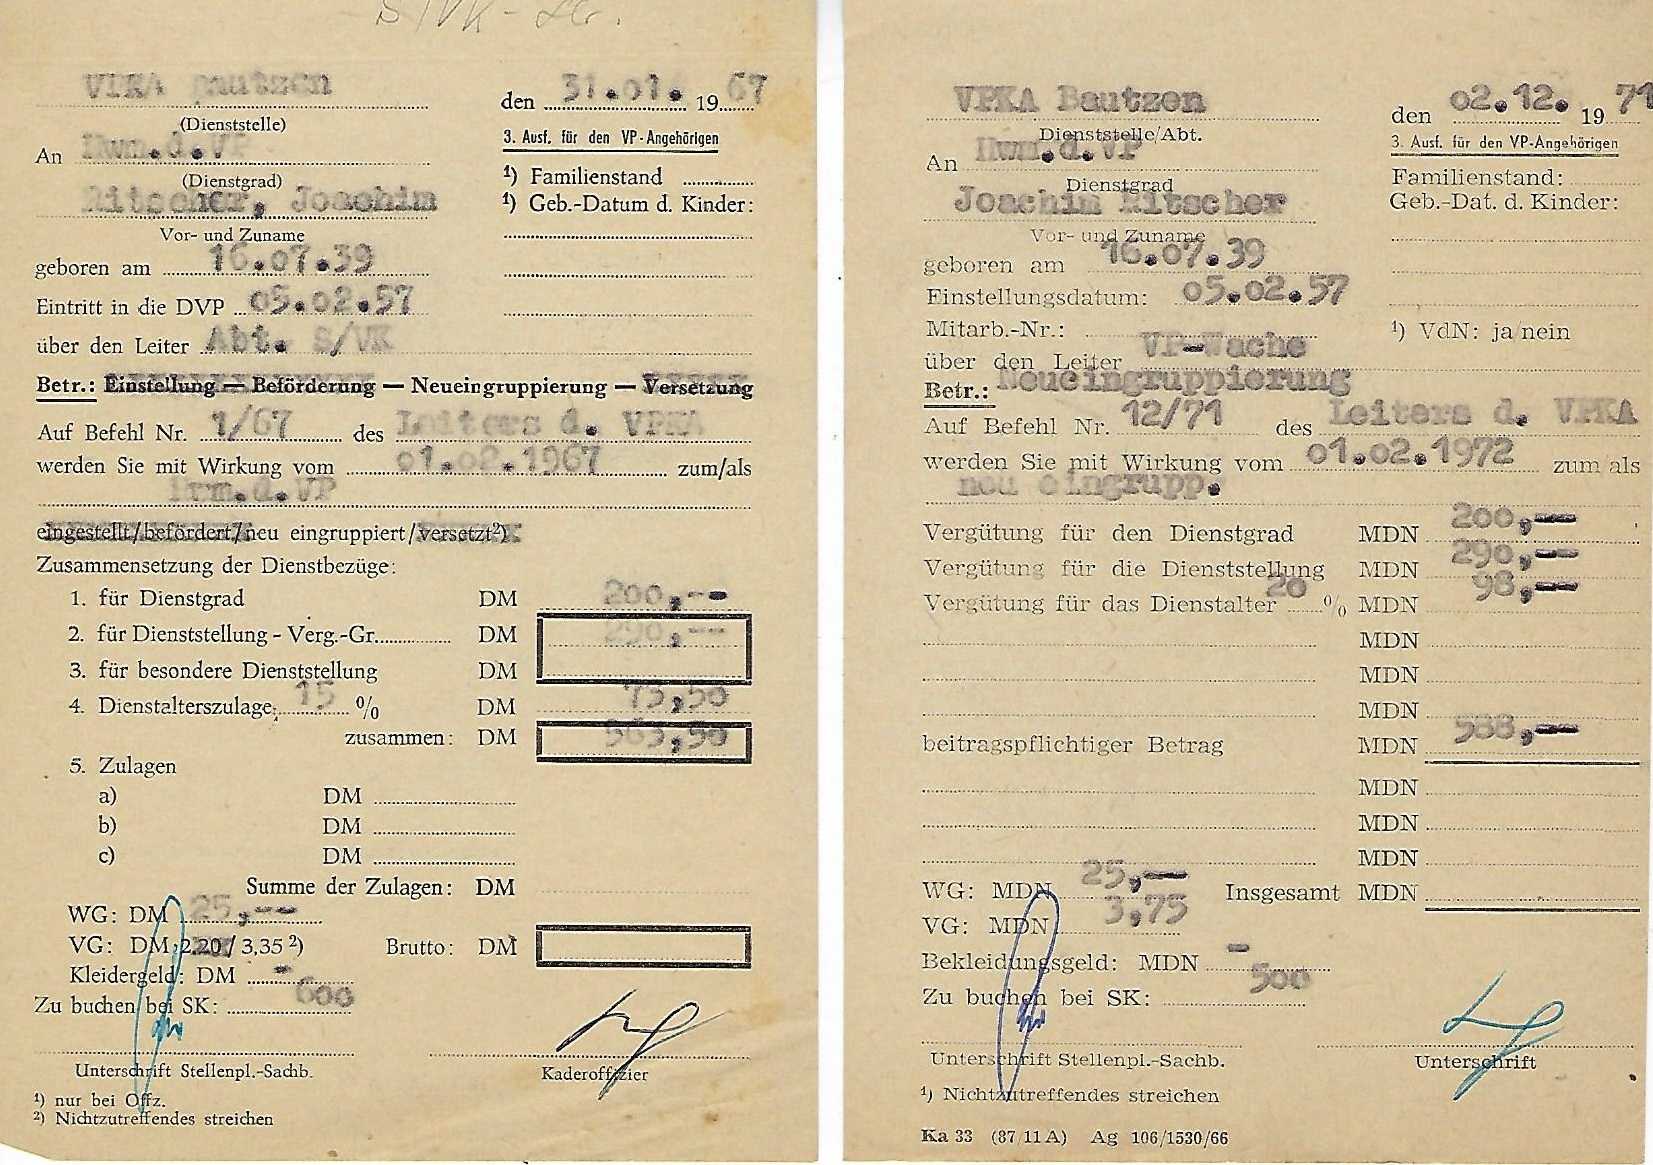 S/VK-
VPKA Bautzen
(Dienststelle)
den 31.01. 1967
3. Ausf. für den VP-Angehörigen
An Hwm.d.VP
(Dienstgrad)
¹) Familienstand
Ritscher, Joachim
¹) Geb.-Datum d. Kinder:
Vor- und Zuname
geboren am 16.07.39
Eintritt in die DVP 05.02.57
über den Leiter Abt. S/VK
Betr.: Einstellung — Beförderung — Neueingruppierung — Versetzung
Auf Befehl Nr. 1/67 des Leiters d. VPKA
werden Sie mit Wirkung vom 01.02.1967 zum/als
Hwm.d.VP
eingestellt/befördert/neu eingruppiert/versetzt²)
Zusammensetzung der Dienstbezüge:
1. für Dienstgrad DM 200,--
2. für Dienststellung - Verg.-Gr. DM 290,--
3. für besondere Dienststellung DM
4. Dienstalterszulage: 15 % DM 73,50
zusammen: DM 563,50
5. Zulagen
a) DM
b) DM
c) DM
Summe der Zulagen: DM
WG: DM 25,--
VG: DM 2,20/3,35 ²) Brutto: DM
Kleidergeld: DM -
Zu buchen bei SK: 600
Unterschrift Stellenpl.-Sachb.
Kaderoffizier
¹) nur bei Offz.
²) Nichtzutreffendes streichen
VPKA Bautzen
Dienststelle/Abt.
den 02.12. 1971
3. Ausf. für den VP-Angehörigen
An Hwm.d.VP
Dienstgrad
Familienstand:
Joachim Ritscher
Geb.-Dat. d. Kinder:
Vor- und Zuname
geboren am 16.07.39
Einstellungsdatum: 05.02.57
Mitarb.-Nr.:
¹) VdN: ja/nein
über den Leiter VP-Wache
Betr.: Neueingruppierung
Auf Befehl Nr. 12/71 des Leiters d. VPKA
werden Sie mit Wirkung vom 01.02.1972 zum als
neu eingrupp.
Vergütung für den Dienstgrad MDN 200,--
Vergütung für die Dienststellung MDN 290,--
Vergütung für das Dienstalter 20 % MDN 98,--
MDN
MDN
MDN
beitragspflichtiger Betrag MDN 588,--
MDN
MDN
MDN
WG: MDN 25,-- Insgesamt MDN
VG: MDN 3,75
Bekleidungsgeld: MDN -
Zu buchen bei SK: 500
Unterschrift Stellenpl.-Sachb.
Unterschrift
¹) Nichtzutreffendes streichen
Ka 33 (87/11 A) Ag 106/1530/66